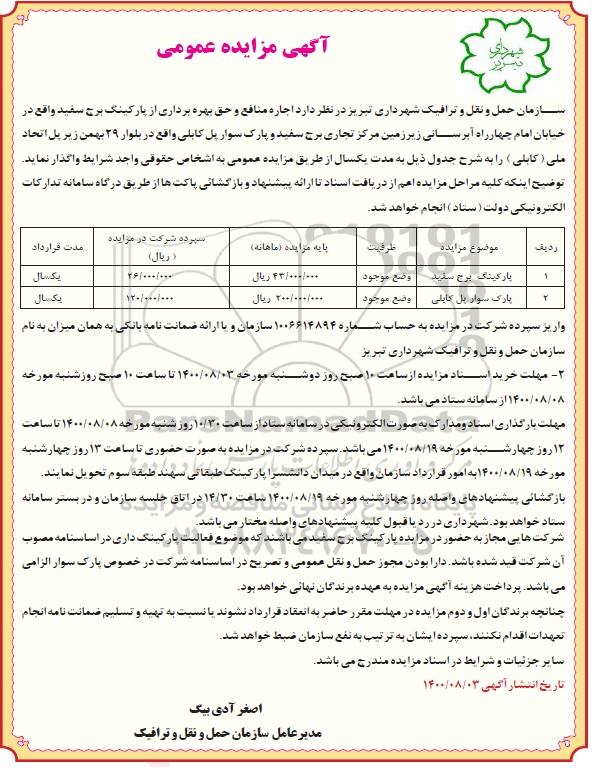 شهرداری تبریز
آگهی مزایده عمومی
ســـازمان حمل و نقل و ترافیک شهرداری تبریز در نظر دارد اجاره منافع و حق بهره برداری از پارکینگ برج سفید واقع در
خیابان امام چهارراه آبرســـانی زیرزمین مرکز تجاری برج سفید و پارک سوار پل کابلی واقع در بلوار ۲۹ بهمن زیر پل اتحاد
ملی (کابلی) را به شرح جدول ذیل به مدت یکسال از طریق مزایده عمومی به اشخاص حقوقی واجد شرایط واگذار نماید.
توضیح اینکه کلیه مراحل مزایده اعم از دریافت اسناد تا ارائه پیشنهاد و بازگشائی پاکت ها از طریق درگاه سامانه تدارکات
الکترونیکی دولت (ستاد) انجام خواهد شد.
ردیف موضوع مزایده ظرفیت پایه مزایده (ماهانه) سپرده شرکت در مزایده (ریال) مدت قرارداد
۱ پارکینگ برج سفید وضع موجود ۴۳/۰۰۰/۰۰۰ ریال ۲۶/۰۰۰/۰۰۰ یکسال
۲ پارک سوار پل کابلی وضع موجود ۲۰۰/۰۰۰/۰۰۰ ریال ۱۲۰/۰۰۰/۰۰۰ یکسال
واریز سپرده شرکت در مزایده به حساب شـــماره ۱۰۰۶۶۱۴۸۹۴ سازمان و یا ارائه ضمانت نامه بانکی به همان میزان به نام
سازمان حمل و نقل و ترافیک شهرداری تبریز
۲- مهلت خرید اســـناد مزایده از ساعت ۱۰ صبح روز دوشـــنبه مورخه ۱۴۰۰/۰۸/۰۳ تا ساعت ۱۰ صبح روزشنبه مورخه
۱۴۰۰/۰۸/۰۸ از سامانه ستاد می باشد.
مهلت بارگذاری اسناد ومدارک به صورت الکترونیکی در سامانه ستاد از ساعت ۱۰/۳۰ روز شنبه مورخه ۱۴۰۰/۰۸/۰۸ تا ساعت
۱۲ روز چهارشـــنبه مورخه ۱۴۰۰/۰۸/۱۹ می باشد. سپرده شرکت در مزایده به صورت حضوری تا ساعت ۱۳ روز چهارشنبه
مورخه ۱۴۰۰/۰۸/۱۹ به امور قرارداد سازمان واقع در میدان دانشسرا پارکینگ طبقاتی سهند طبقه سوم تحویل نمایند.
بازگشائی پیشنهادهای واصله روز چهارشنبه مورخه ۱۴۰۰/۰۸/۱۹ ساعت ۱۴/۳۰ در اتاق جلسه سازمان و در بستر سامانه
ستاد خواهد بود. شهرداری در رد یا قبول کلیه پیشنهادهای واصله مختار می باشد.
شرکت هایی مجاز به حضور در مزایده پارکینگ برج سفید می باشند که موضوع فعالیت پارکینگ داری در اساسنامه مصوب
آن شرکت قید شده باشد. دارا بودن مجوز حمل و نقل عمومی و تصریح در اساسنامه شرکت در خصوص پارک سوار الزامی
می باشد. پرداخت هزینه آگهی مزایده به عهده برندگان نهائی خواهد بود.
چنانچه برندگان اول و دوم مزایده در مهلت مقرر حاضر به انعقاد قرارداد نشوند یا نسبت به تهیه و تسلیم ضمانت نامه انجام
تعهدات اقدام نکنند، سپرده ایشان به ترتیب به نفع سازمان ضبط خواهد شد.
سایر جزئیات و شرایط در اسناد مزایده مندرج می باشد.
تاریخ انتشار آگهی ۱۴۰۰/۰۸/۰۳
اصغر آدی بیگ
مدیرعامل سازمان حمل و نقل و ترافیک
ParsNamadData
پایگاه اطلاع رسانی مناقصه و مزایده